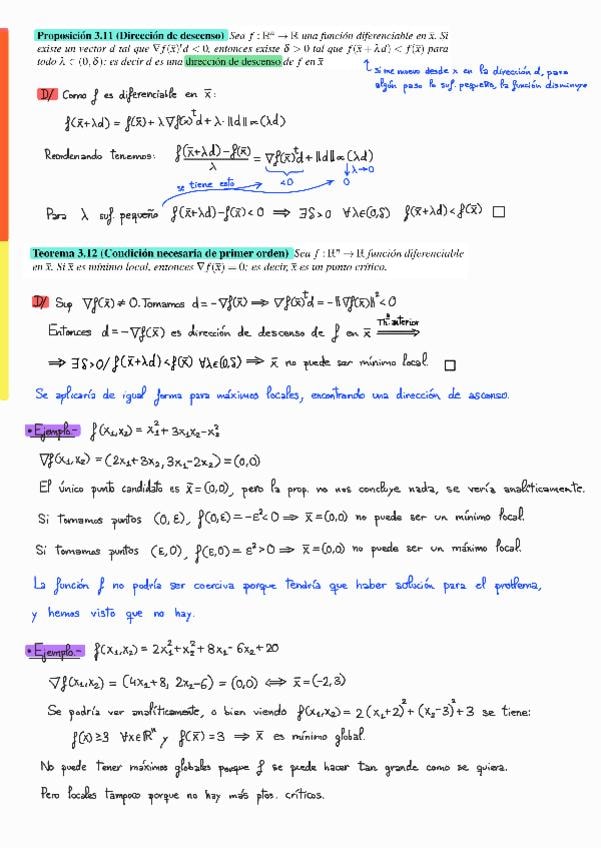 Proposición 3.11 (Dirección de descenso) Sea f : ℝⁿ → ℝ una función diferenciable en x̄. Si
existe un vector d tal que ∇f(x̄)ᵗd < 0, entonces existe δ > 0 tal que f(x̄ + λd) < f(x̄) para
todo λ ∈ (0, δ); es decir d es una dirección de descenso de f en x̄
↑ si me muevo desde x en la dirección d, para
algún paso lo suf. pequeño, la función disminuye
D/ Como f es diferenciable en x̄:
f(x̄+λd) = f(x̄) + λ∇f(x̄)ᵗd + λ·‖d‖∝(λd)
Reordenando tenemos: (f(x̄+λd)-f(x̄))/λ = ∇f(x̄)ᵗd + ‖d‖∝(λd)
se tiene esto <0 ↓λ→0 0
Para λ suf. pequeño f(x̄+λd)-f(x̄)<0 ⟹ ∃δ>0 ∀λ∈(0,δ) f(x̄+λd)<f(x̄) □
Teorema 3.12 (Condición necesaria de primer orden) Sea f : ℝⁿ → ℝ función diferenciable
en x̄. Si x̄ es mínimo local, entonces ∇f(x̄) = 0; es decir, x̄ es un punto crítico.
D/ Sup ∇f(x̄) ≠ 0. Tomamos d = -∇f(x̄) ⟹ ∇f(x̄)ᵗd = -‖∇f(x̄)‖² < 0
Entonces d = -∇f(x̄) es dirección de descenso de f en x̄ ⟹ Th.ª anterior
⟹ ∃δ>0/ f(x̄+λd)<f(x̄) ∀λ∈(0,δ) ⟹ x̄ no puede ser mínimo local. □
Se aplicaría de igual forma para máximos locales, encontrando una dirección de ascenso.
• Ejemplo.- f(x₁,x₂) = x₁²+3x₁x₂-x₂²
∇f(x₁,x₂) = (2x₁+3x₂, 3x₁-2x₂) = (0,0)
El único punto candidato es x̄=(0,0), pero la prop. no nos concluye nada, se vería analíticamente.
Si tomamos puntos (0,ε), f(0,ε)=-ε²<0 ⟹ x̄=(0,0) no puede ser un mínimo local.
Si tomamos puntos (ε,0), f(ε,0)=ε²>0 ⟹ x̄=(0,0) no puede ser un máximo local.
La función f no podría ser coerciva porque tendría que haber solución para el problema,
y hemos visto que no hay.
• Ejemplo.- f(x₁,x₂) = 2x₁²+x₂²+8x₁-6x₂+20
∇f(x₁,x₂) = (4x₁+8, 2x₂-6) = (0,0) ⟺ x̄=(-2,3)
Se podría ver analíticamente, o bien viendo f(x₁,x₂) = 2(x₁+2)²+(x₂-3)²+3 se tiene:
f(x)≥3 ∀x∈ℝⁿ y f(x̄)=3 ⟹ x̄ es mínimo global.
No puede tener máximos globales porque f se puede hacer tan grande como se quiera.
Pero locales tampoco porque no hay más ptos. críticos.